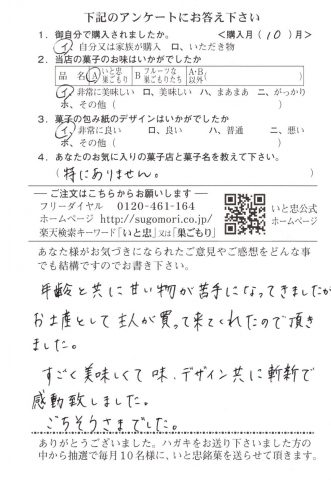 下記のアンケートにお答え下さい
1．御自分で購入されましたか。　＜購入月（10）月＞
イ、自分又は家族が購入　ロ、いただき物
2．当店の菓子のお味はいかがでしたか
品 名　A いと忠巣ごもり　B フルーツな巣ごもりたち　A・B以外（　　　）
イ、非常に美味しい　ロ、美味しい　ハ、まあまあ　ニ、がっかり
ホ、その他（　　　）
3．菓子の包み紙のデザインはいかがでしたか
イ、非常に良い　ロ、良い　ハ、普通　ニ、悪い
ホ、その他（　　　）
4．あなたのお気に入りの菓子店と菓子名を教えて下さい。
（特にありません。）
ご注文はこちらからお願いします
フリーダイヤル　0120-461-164
ホームページ　http://sugomori.co.jp/
楽天検索キーワード「いと忠」又は「巣ごもり」
いと忠公式
ホームページ
あなた様がお気づきになられたご意見やご感想をどんな事
でも結構ですのでお書き下さい。
年齢と共に甘い物が苦手になってきましたが
お土産として主人が買って来てくれたので頂き
ました。
すごく美味しくて味、デザイン共に斬新で
感動致しました。
ごちそうさまでした。
ありがとうございました。ハガキをお送り下さいました方の
中から抽選で毎月10名様に、いと忠銘菓を送らせて頂きます。